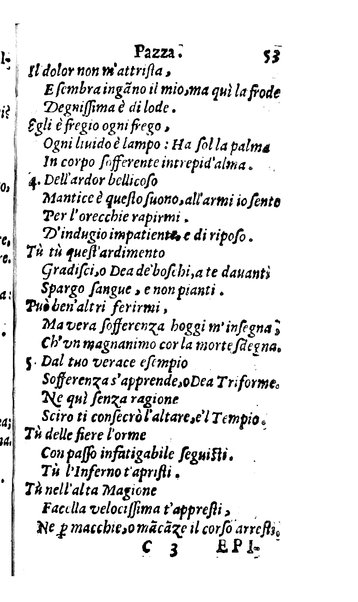 Pazza. 53
Il dolor non m'attrista,
E sembra ingãno il mio, ma quì la frode
Degnissima è di lode.
Egli è fregio ogni frego,
Ogni liuido è lampo: Ha sol la palma
In corpo sofferente intrepid'alma.
4. Dell'ardor bellicoso
Mantice è questo suono, all'armi io sento
Per l'orecchie rapirmi.
D'indugio impatiente, e di riposo.
Tù tù quest'ardimento
Gradisci, o Dea de'boschi, a te dauanti
Spargo sangue, e non pianti.
Può ben'altri ferirmi,
Ma vera sofferenza hoggi m'insegna,
Ch'vn magnanimo cor la morte sdegna.
5. Dal tuo verace esempio
Sofferenza s'apprende, o Dea Triforme.
Ne quì senza ragione
Sciro ti consecrò l'altare, e'l Tempio.
Tù delle fiere l'orme
Con passo infatigabile seguisti.
Tù l'Inferno t'apristi.
Tù nell'alta Magione
Facella velocissima t'appresti,
Ne p macchie, o mãcãze il corso arresti.
C 3 EPI-